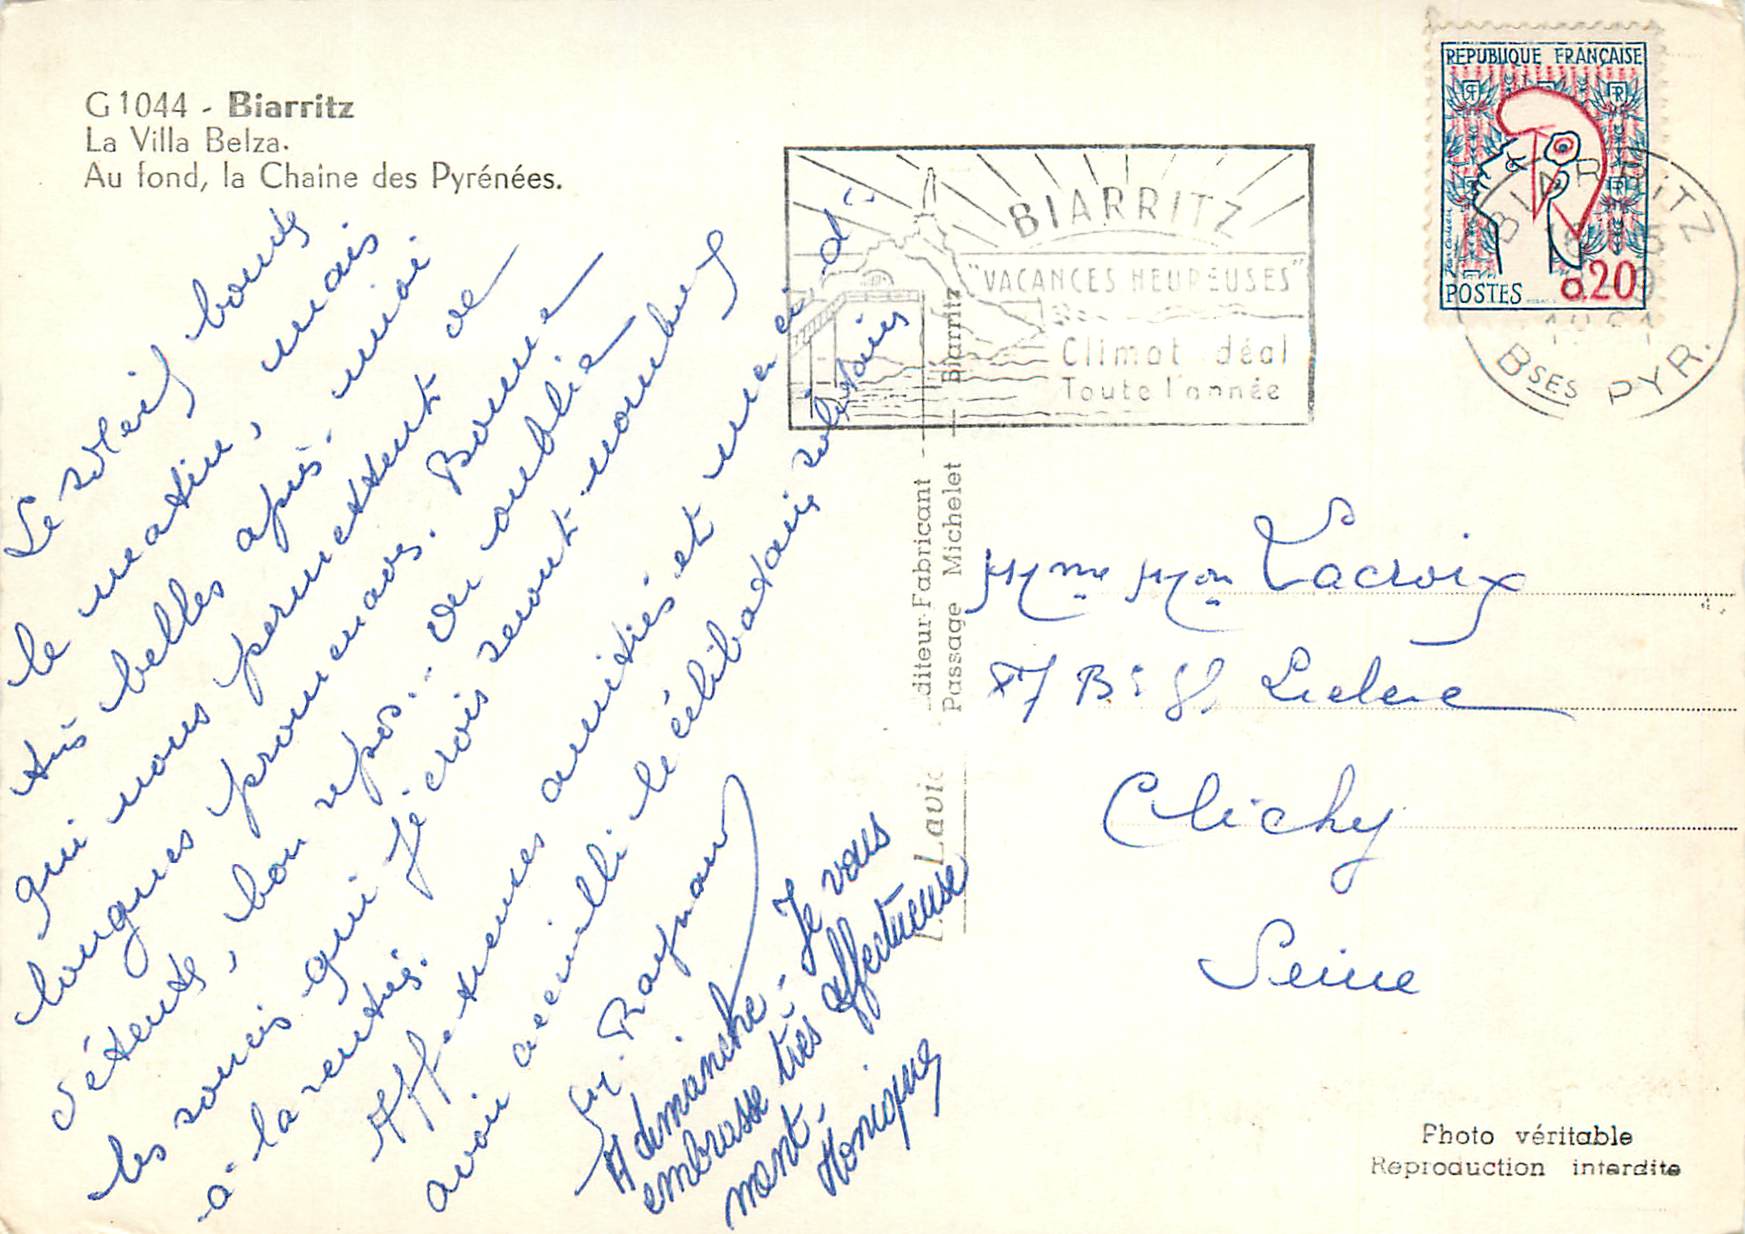 G 1044 - Biarritz
La Villa Belza.
Au fond, la Chaine des Pyrénées.
Le soleil boude
le matin, mais
très belles après-midi
qui nous permettent de
longues promenades. Bonne
détente, bon repos... on oublie
les soucis qui je crois seront nombreux
à la rentrée.
Affectueuses amitiés et merci d'
avoir accueilli le célibataire solitaire
Raymond
A dimanche - Je vous
embrasse très affectueuse
ment -
Monique
diteur-Fabricant - 
Passage Michelet — Biarritz
BIARRITZ
"VACANCES HEUREUSES"
Climat idéal
Toute l'année
REPUBLIQUE FRANÇAISE
POSTES 0.20
BIARRITZ
BSES PYR.
Mme Mon Lacroix
87 Bis Bd Leclerc
Clichy
Seine
Photo véritable
Reproduction interdite